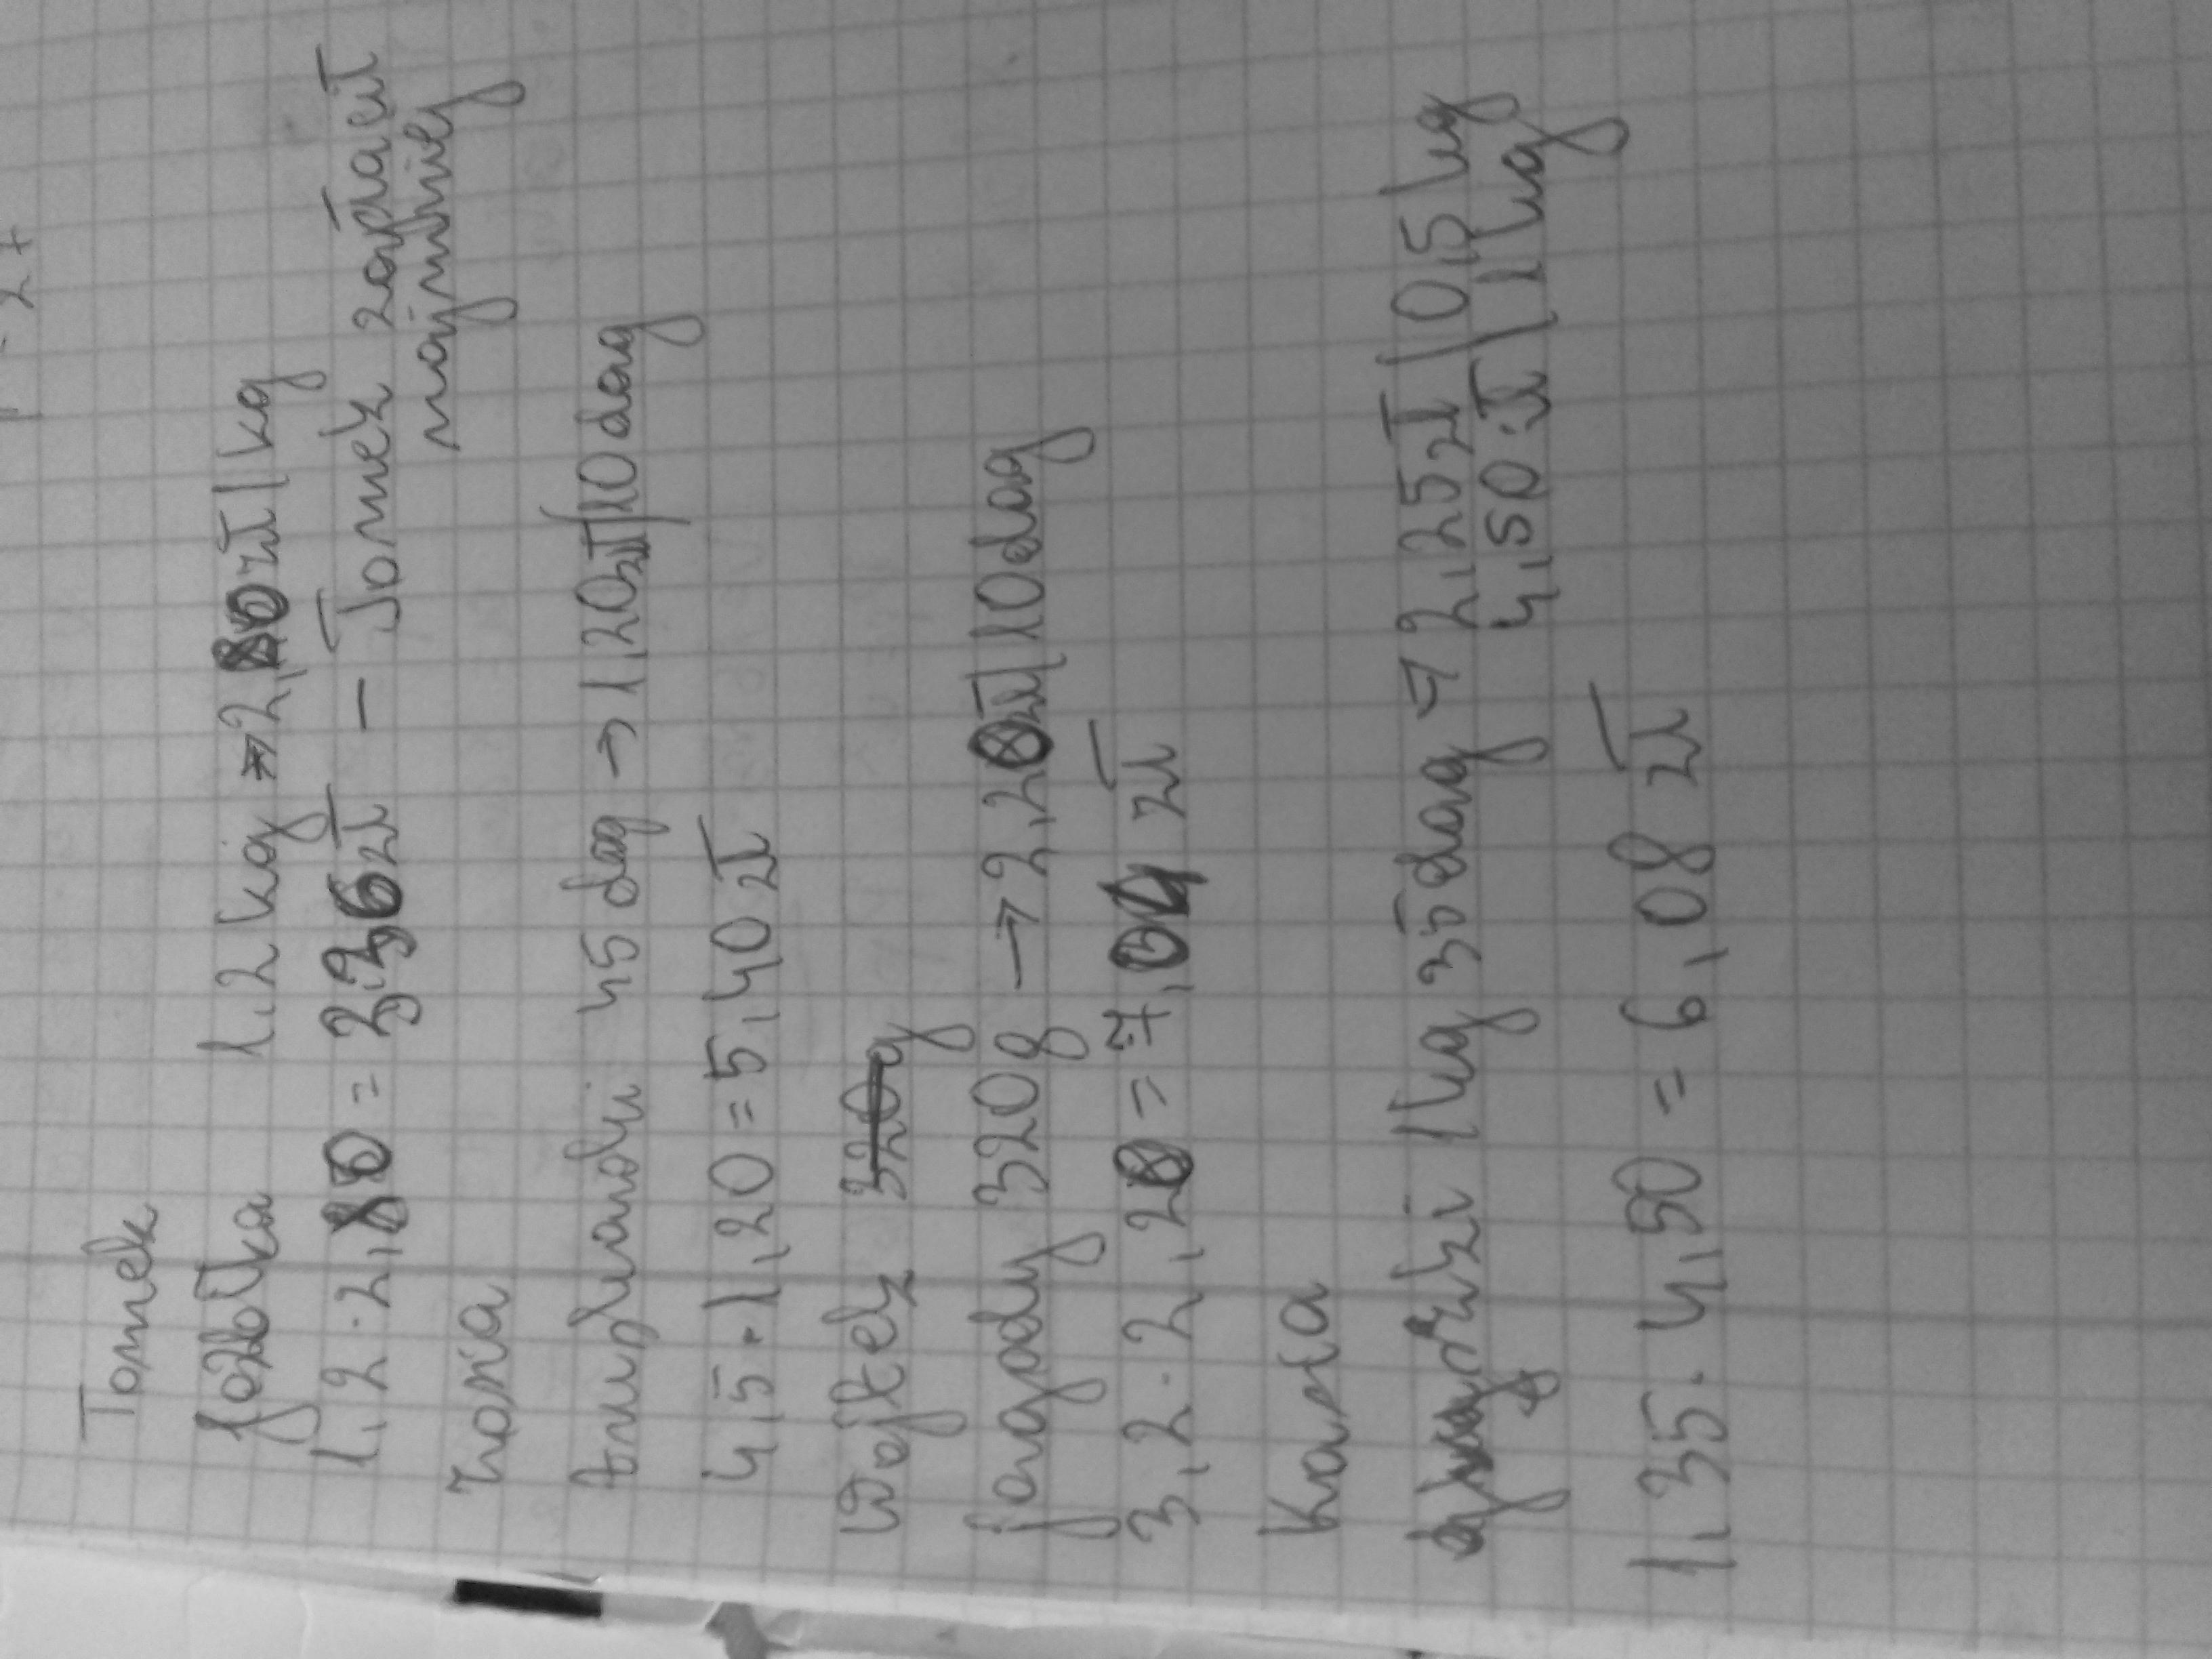 Tomek
jabłka 1,2 kg → 2,80 zł/kg
1,2 · 2,80 = 3,36 zł – Tomek zapłacił
najmniej
Zosia
truskawki 45 dag → 1,20 zł/10 dag
4,5 · 1,20 = 5,40 zł
Wojtek 320g
jagody 320g → 2,20 zł/10 dag
3,2 · 2,20 = 7,04 zł
Kasia
1 kg 35 dag → 2,25 zł/0,5 kg
4,50 zł/1 kg
1,35 · 4,50 = 6,08 zł